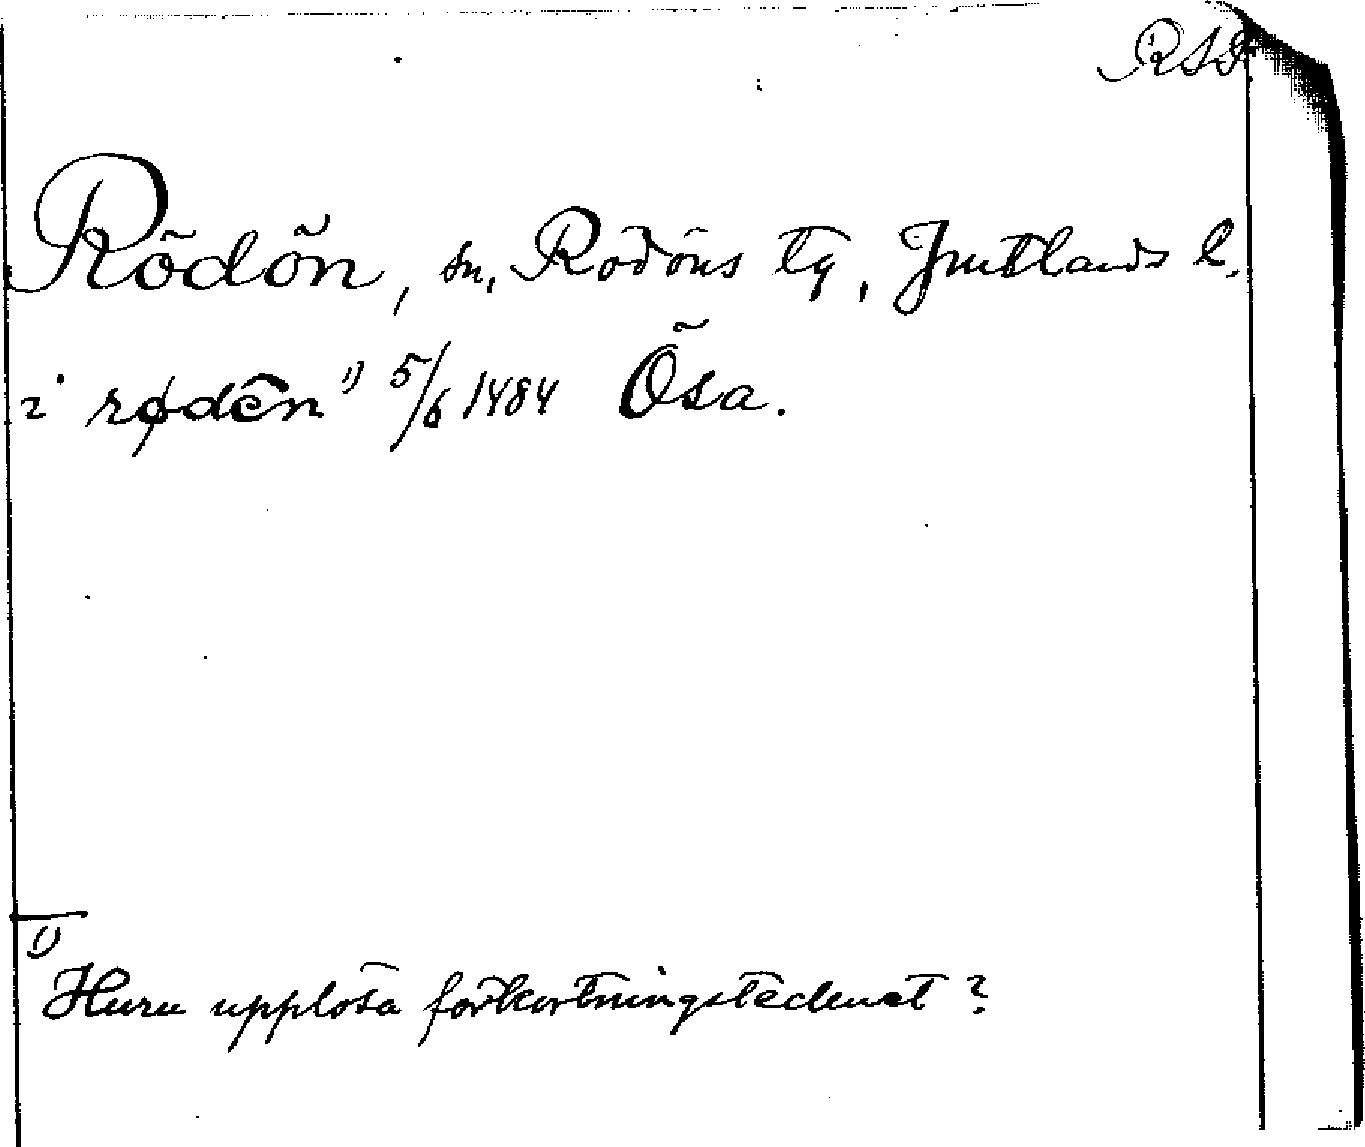 RSS
Rödön, sn, Rödöns tg, Jmtlands l.
i rødēn ¹⁾ 5/6 1484 Ösa.
¹⁾ Huru upplösa förkortningstecknet?